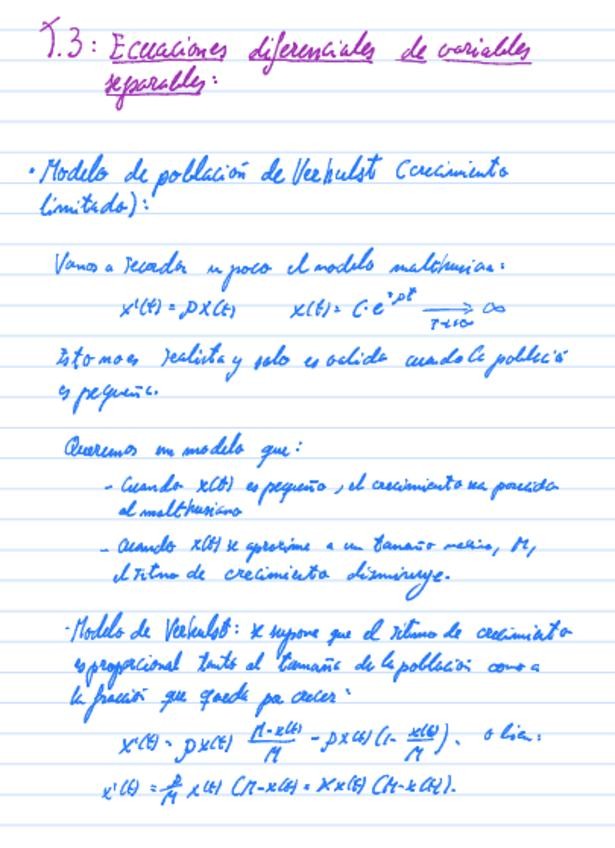 T.3: Ecuaciones diferenciales de variables
separables:
• Modelo de población de Verhulst (crecimiento
limitado):
Vamos a recordar un poco el modelo malthusiano:
x'(t) = ρx(t)   x(t) = C·e^ρt → ∞
Esto no es realista y solo es valida cuando la població
es pequeña.
Queremos un modelo que:
- Cuando x(t) es pequeño, el crecimiento sea parecido
al malthusiano
- Cuando x(t) se aproxime a un tamaño maximo, M,
el ritmo de crecimiento disminuye.
·Modelo de Verhulst: se supone que el ritmo de crecimiento
es proporcional tanto al tamaño de la población como a
la fracción que queda por crecer:
x'(t) = ρx(t) (M-x(t))/M = ρx(t) (1 - x(t)/M). o bien:
x'(t) = ρ/M x(t) (M-x(t)) = γx(t) (M-x(t)).